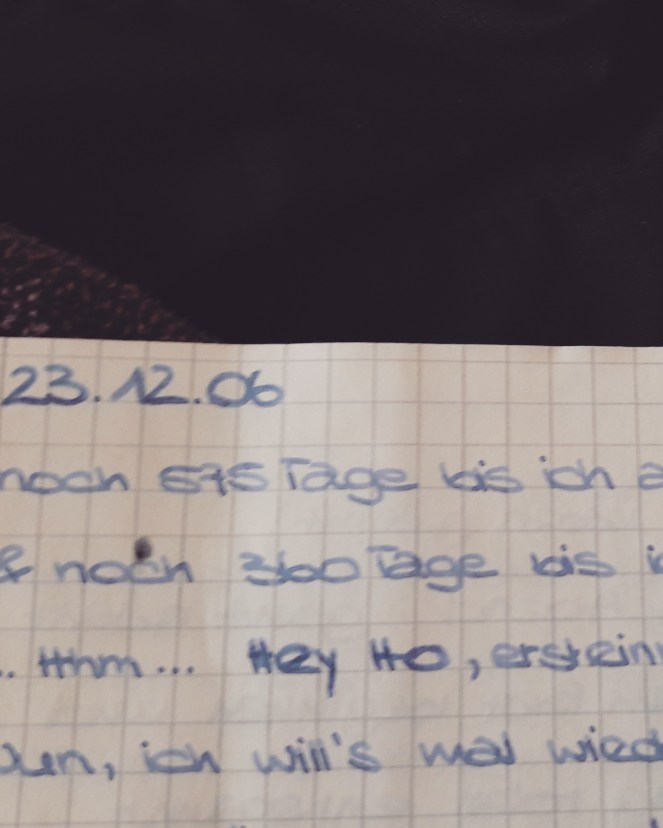 23.12.06
noch 575 Tage bis ich
& noch 360 Tage bis
.. Hhm... Hey Ho, ersteinm
Nun, ich will's mal wied